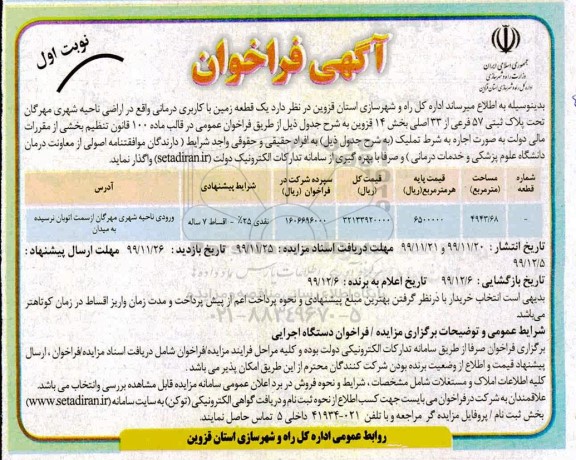 آگهی فراخوان
نوبت اول
جمهوری اسلامی ایران
وزارت راه و شهرسازی
اداره کل راه و شهرسازی استان قزوین
بدینوسیله به اطلاع میرساند اداره کل راه و شهرسازی استان قزوین در نظر دارد یک قطعه زمین با کاربری درمانی واقع در اراضی ناحیه شهری مهرگان
تحت پلاک ثبتی ۵۷ فرعی از ۳۳ اصلی بخش ۱۴ قزوین به شرح جدول ذیل از طریق فراخوان عمومی در قالب ماده ۱۰۰ قانون تنظیم بخشی از مقررات
مالی دولت به صورت اجاره به شرط تملیک (به شرح جدول ذیل) به افراد حقیقی و حقوقی واجد شرایط ( دارندگان موافقتنامه اصولی از معاونت درمان
دانشگاه علوم پزشکی و خدمات درمانی ) و صرفا با بهره گیری از سامانه تدارکات الکترونیک دولت (setadiran.ir) واگذار نماید.
شماره قطعه مساحت (مترمربع) قیمت پایه هرمترمربع(ریال) قیمت کل (ریال) سپرده شرکت در فراخوان (ریال) شرایط پیشنهادی آدرس
- ۴۹۴۳/۶۸ ۶۵۰۰۰۰۰ ۳۲۱۳۳۹۲۰۰۰۰ ۱۶۰۶۶۹۶۰۰۰ نقدی ۲۵٪ - اقساط ۷ ساله ورودی ناحیه شهری مهرگان ازسمت اتوبان نرسیده
به میدان
تاریخ انتشار : ۹۹/۱۱/۲۰ و ۹۹/۱۱/۲۱ مهلت دریافت اسناد مزایده : ۹۹/۱۱/۲۵ تاریخ بازدید : ۹۹/۱۱/۲۶ مهلت ارسال پیشنهاد :
۹۹/۱۲/۵
تاریخ بازگشایی : ۹۹/۱۲/۶ تاریخ اعلام به برنده : ۹۹/۱۲/۶
بدیهی است انتخاب خریدار با درنظر گرفتن بهترین مبلغ پیشنهادی و نحوه پرداخت اعم از پیش پرداخت و مدت زمان واریز اقساط در زمان کوتاهتر
می‌باشد.
شرایط عمومی و توضیحات برگزاری مزایده / فراخوان دستگاه اجرایی
برگزاری فراخوان صرفا از طریق سامانه تدارکات الکترونیکی دولت بوده و کلیه مراحل فرایند مزایده/فراخوان شامل دریافت اسناد مزایده/فراخوان ، ارسال
پیشنهاد قیمت و اطلاع از وضعیت برنده بودن شرکت کنندگان محترم از این طریق امکان پذیر می باشد .
کلیه اطلاعات املاک و مستغلات شامل مشخصات ، شرایط و نحوه فروش در برد اعلان عمومی سامانه مزایده قابل مشاهده بررسی وانتخاب می باشد.
علاقمندان به شرکت در فراخوان می بایست جهت کسب اطلاع از نحوه ثبت نام و دریافت گواهی الکترونیکی (توکن) به سایت سامانه (www.setadiran.ir)
بخش ثبت نام / پروفایل مزایده گر مراجعه و یا تلفن ۰۲۱-۴۱۹۳۴ داخلی ۵ تماس حاصل نمایند.
روابط عمومی اداره کل راه و شهرسازی استان قزوین
۰۲۱-۸۸۳۴۹۶۷۰-۵